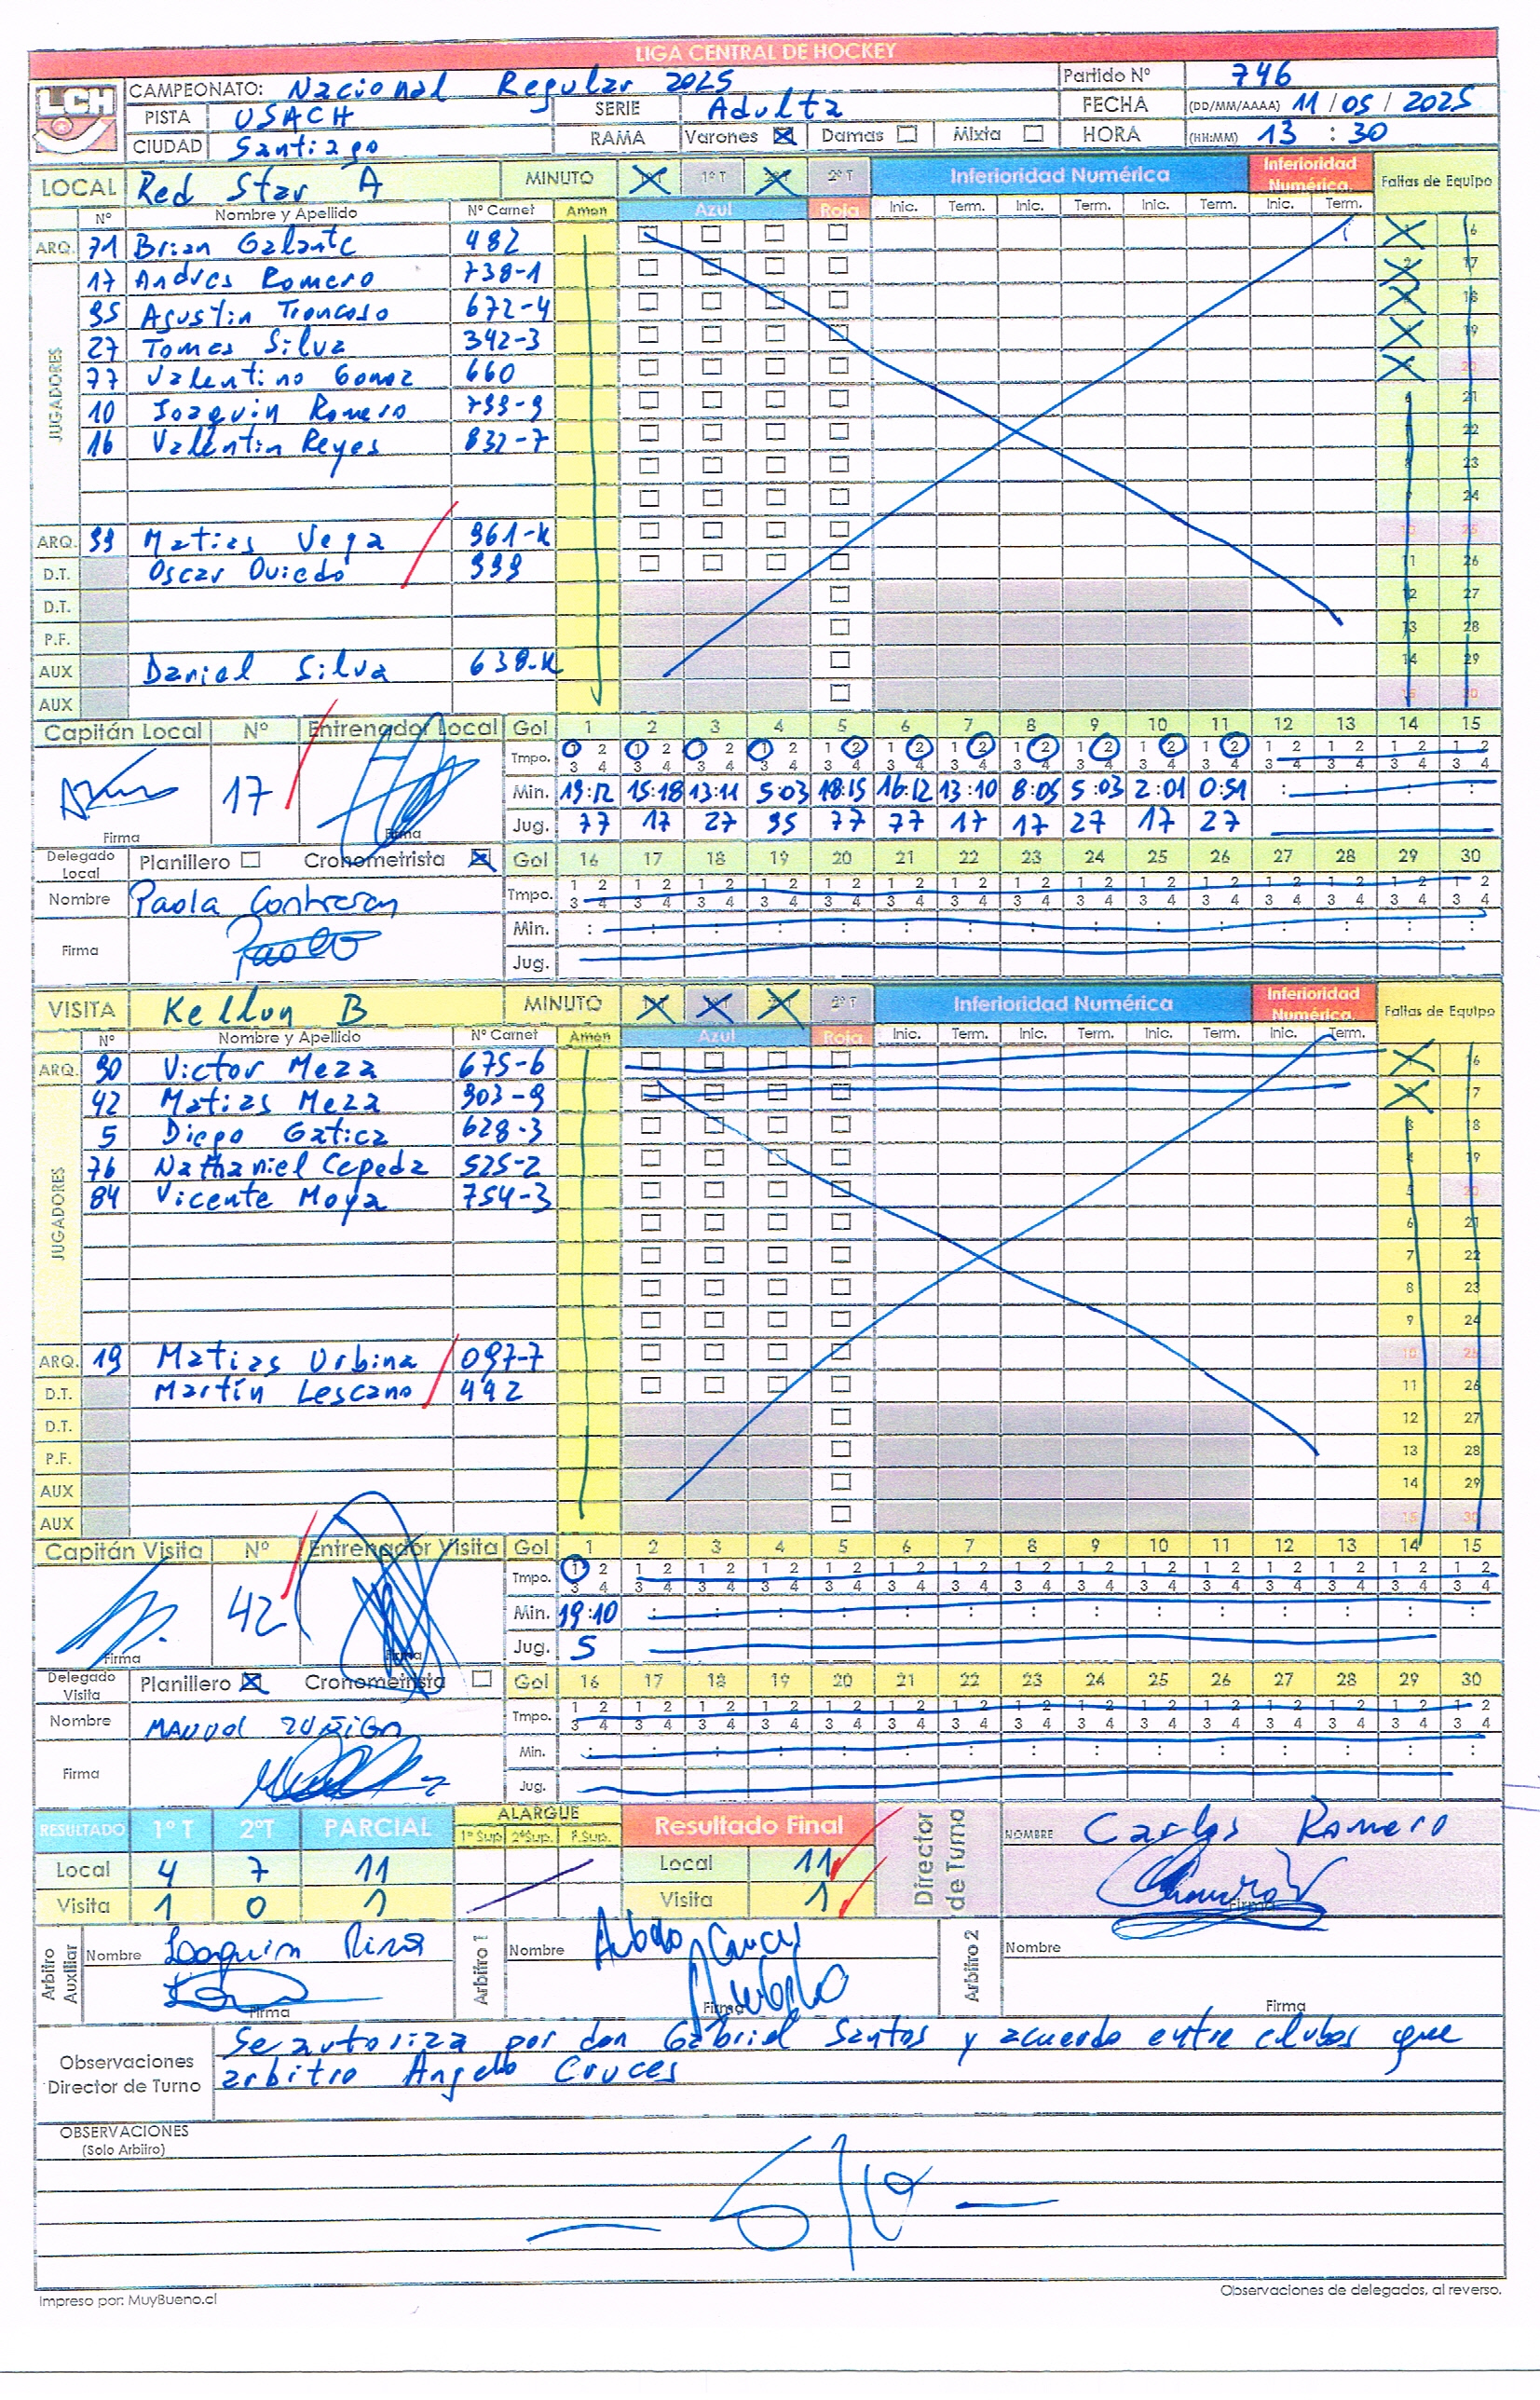 LIGA CENTRAL DE HOCKEY
LCH
CAMPEONATO: Nacional Regular 2025 Partido Nº 746
PISTA USACH SERIE Adulta FECHA (DD/MM/AAAA) 11 / 05 / 2025
CIUDAD Santiago RAMA Varones Damas Mixta HORA (HH:MM) 13 : 30
LOCAL Red Star A MINUTO 1º T 2º T Inferioridad Numérica Inferioridad Numérica Faltas de Equipo
Nº Nombre y Apellido Nº Carnet Amon Azul Roja Inic. Term. Inic. Term. Inic. Term. Inic. Term.
ARQ. 71 Brian Galante 482
JUGADORES
17 Andres Romero 738-1
95 Agustin Troncoso 672-4
27 Tomas Silva 342-3
77 Valentino Gomez 660
10 Joaquin Romero 799-9
16 Valentin Reyes 832-7
ARQ. 99 Matias Vega 961-K
D.T. Oscar Oviedo 999
D.T.
P.F.
AUX Daniel Silva 638-K
AUX
Capitán Local Nº Entrenador Local Gol 1 2 3 4 5 6 7 8 9 10 11 12 13 14 15
Tmpo. 1 2 3 4
17 Min. 19:12 15:18 13:11 5:03 18:15 16:12 13:10 8:05 5:03 2:01 0:51
Firma Firma Jug. 77 17 27 95 77 77 17 17 27 17 27
Delegado Local Planillero Cronometrista Gol 16 17 18 19 20 21 22 23 24 25 26 27 28 29 30
Nombre Paola Contreras Tmpo. 1 2 3 4
Firma Paola Min.
Jug.
VISITA Kellun B MINUTO 2º T Inferioridad Numérica Inferioridad Numérica Faltas de Equipo
Nº Nombre y Apellido Nº Carnet Amon Azul Roja Inic. Term. Inic. Term. Inic. Term. Inic. Term.
ARQ. 90 Victor Meza 675-6
JUGADORES
42 Matias Meza 903-9
5 Diego Gatica 628-3
76 Nathaniel Cepeda 525-2
84 Vicente Moya 754-3
ARQ. 19 Matias Urbina 097-7
D.T. Martín Lescano 442
D.T.
P.F.
AUX
AUX
Capitán Visita Nº Entrenador Visita Gol 1 2 3 4 5 6 7 8 9 10 11 12 13 14 15
Tmpo. 1 2 3 4
42 Min. 19:10
Firma Firma Jug. 5
Delegado Visita Planillero Cronometrista Gol 16 17 18 19 20 21 22 23 24 25 26 27 28 29 30
Nombre MANUEL ZUÑIGA Tmpo. 1 2 3 4
Min.
Firma Jug.
RESULTADO 1º T 2ºT PARCIAL ALARGUE 1º Sup. 2ºSup. P.Sup. Resultado Final Director de Turno NOMBRE Carlos Romero
Local 4 7 11 Local 11
Visita 1 0 1 Visita 1 Firma
Arbitro Auxiliar Nombre Joaquin Arbitro 1 Nombre Cruces Arbitro 2 Nombre
Firma Firma Firma
Observaciones Director de Turno
Se autoriza por don Gabriel Santos y acuerdo entre clubes que
arbitro Angello Cruces
OBSERVACIONES
(Solo Arbitro)
Impreso por: MuyBueno.cl Observaciones de delegados, al reverso.